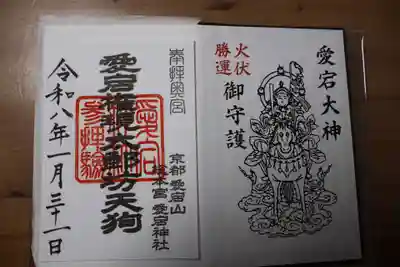 愛宕大神
火伏
勝運
御守護
奉拝奥宮
愛宕権現太郎坊天狗
愛宕
京都 愛宕山
総本宮 愛宕神社
令和八年一月三十一日